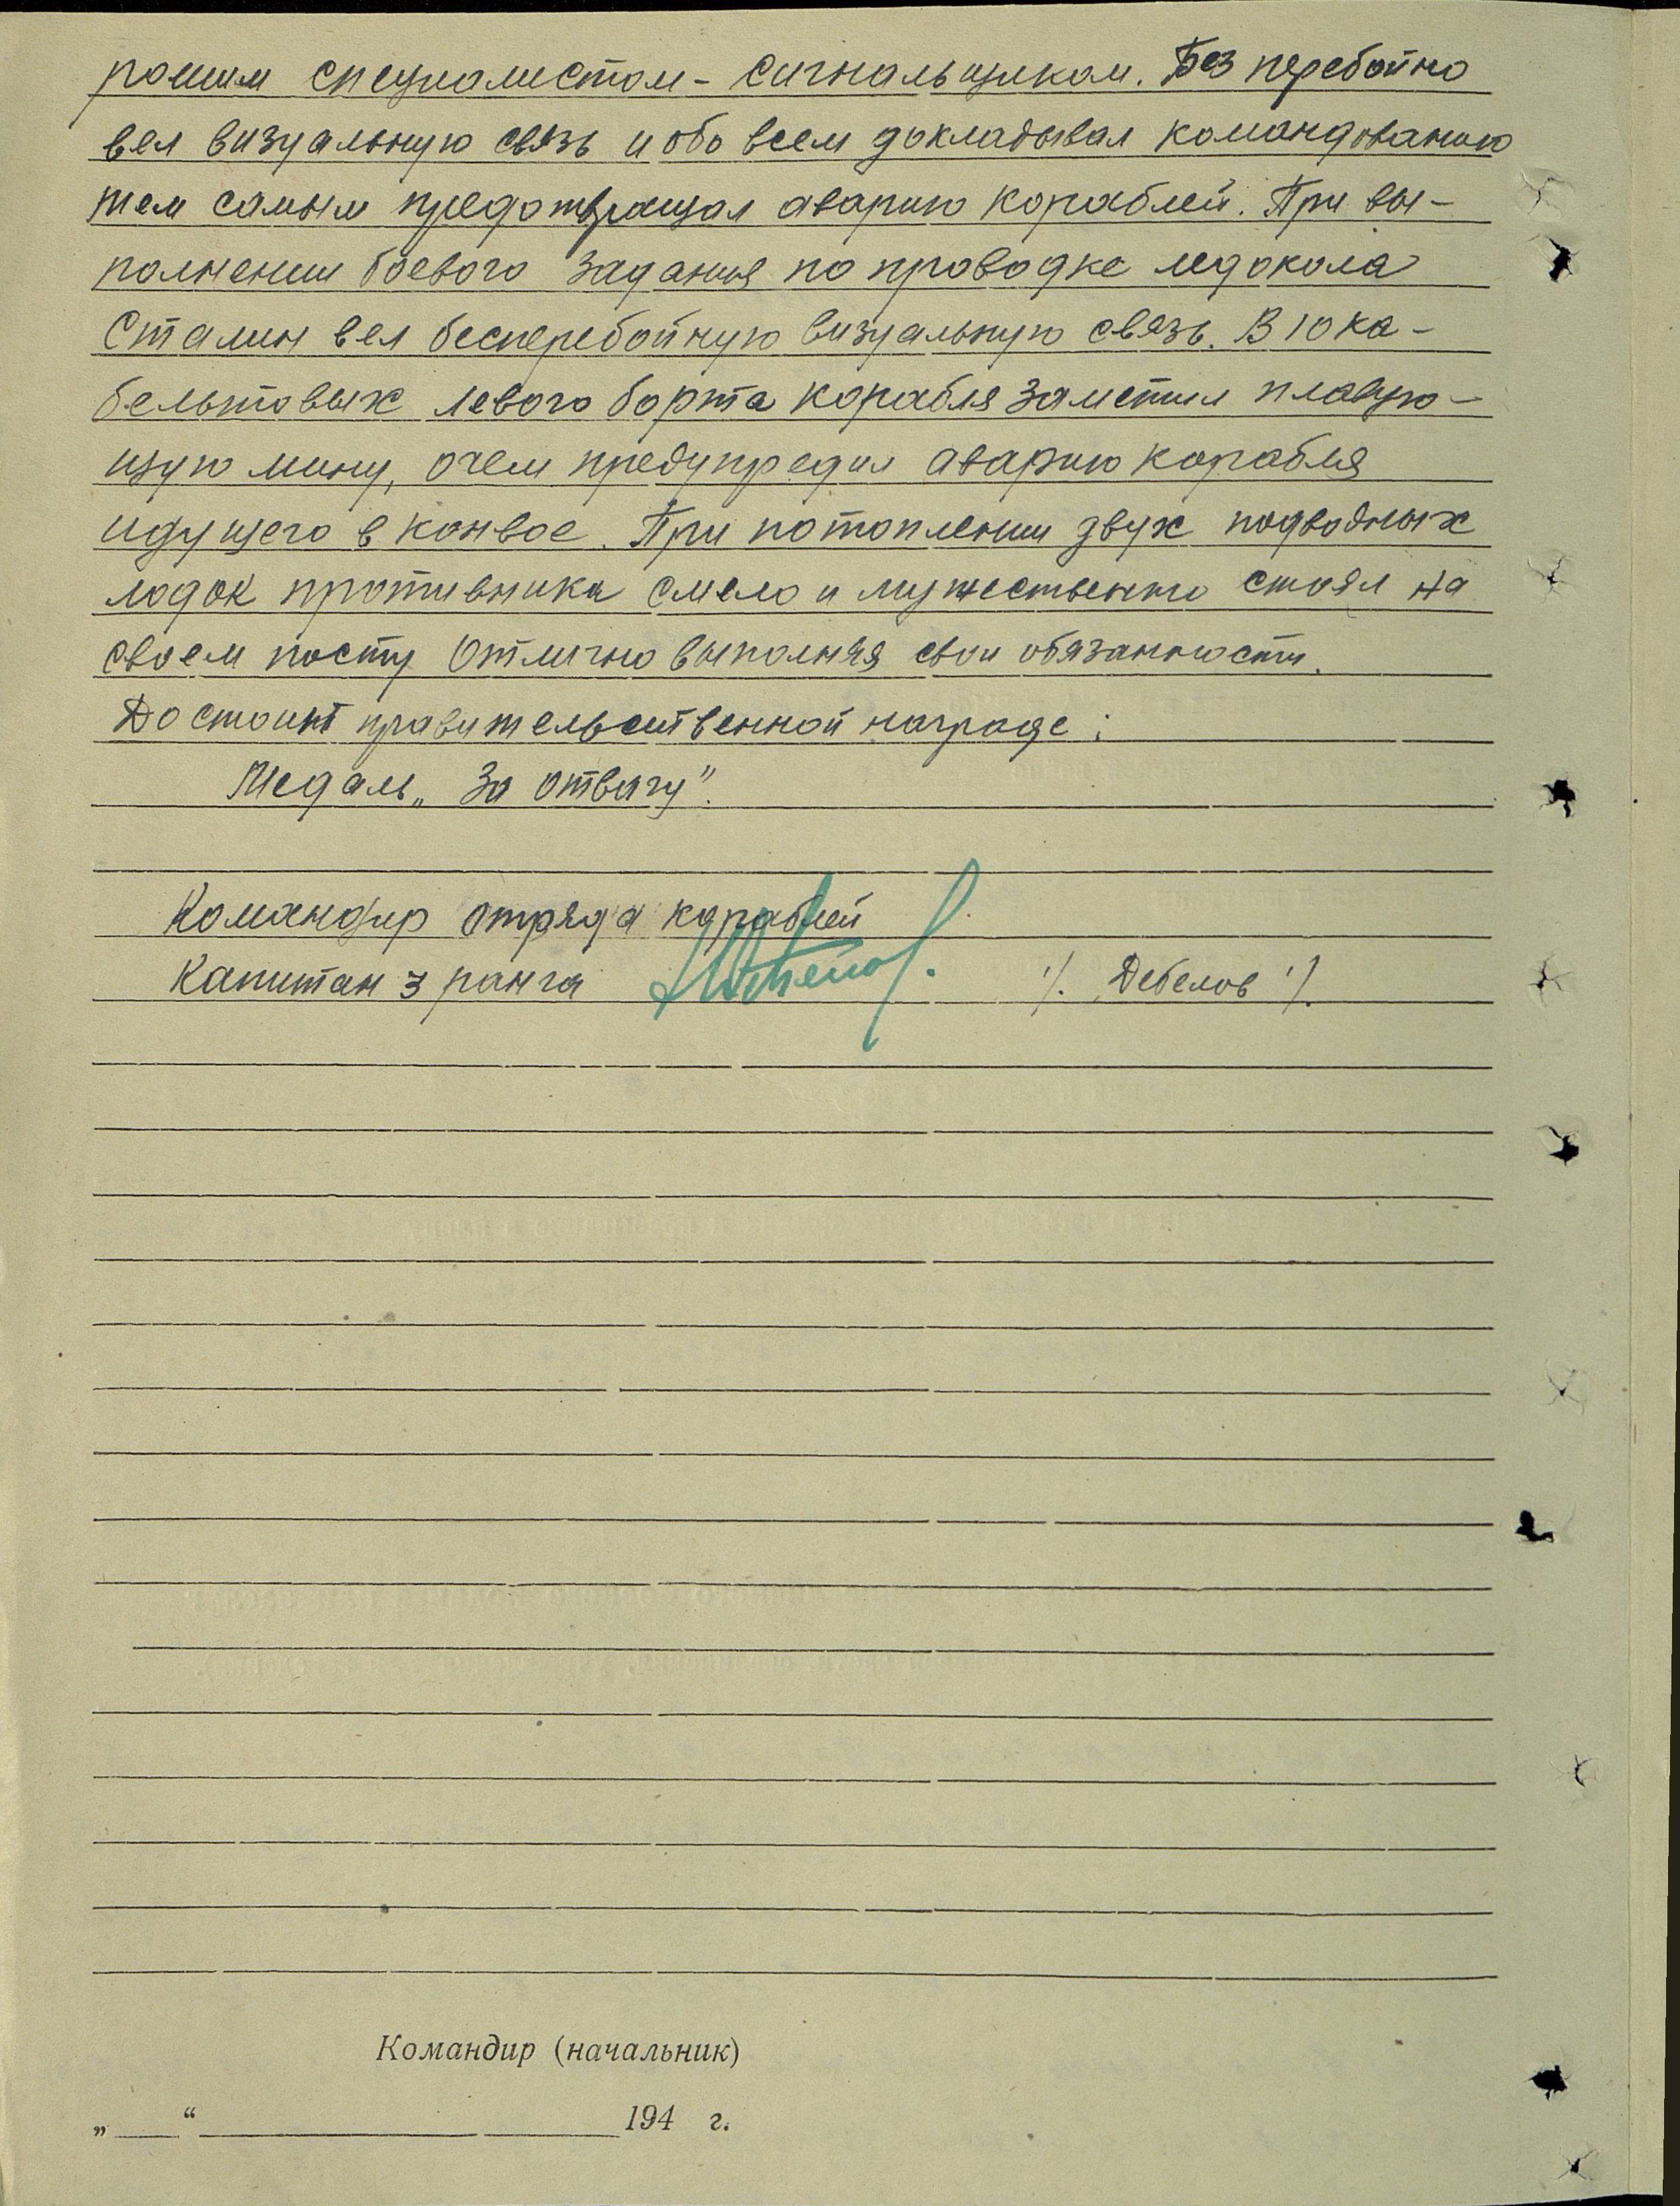 рошим специалистом - сигнальщиком. Без перебойно
вел визуальную связь и обо всем докладывал командованию
тем самым предотвращал аварию кораблей. При вы-
полнении боевого задания по проводке ледокола
Сталин вел бесперебойную визуальную связь. В 10 ка-
бельтовых левого борта корабля заметил плаваю-
щую мину, очем предупредил аварию корабля
идущего в конвое. При потоплении звух подводных
лодок противника смело и мужественно стоял на
своем посту отлично выполняя свои обязанности.
Достоин правительственной награде:
Медаль „За отвагу".
Командир отряда кораблей
Капитан 3 ранга ٪ Дебелов ٪
Командир (начальник)
„___“ ____________ 194 г.